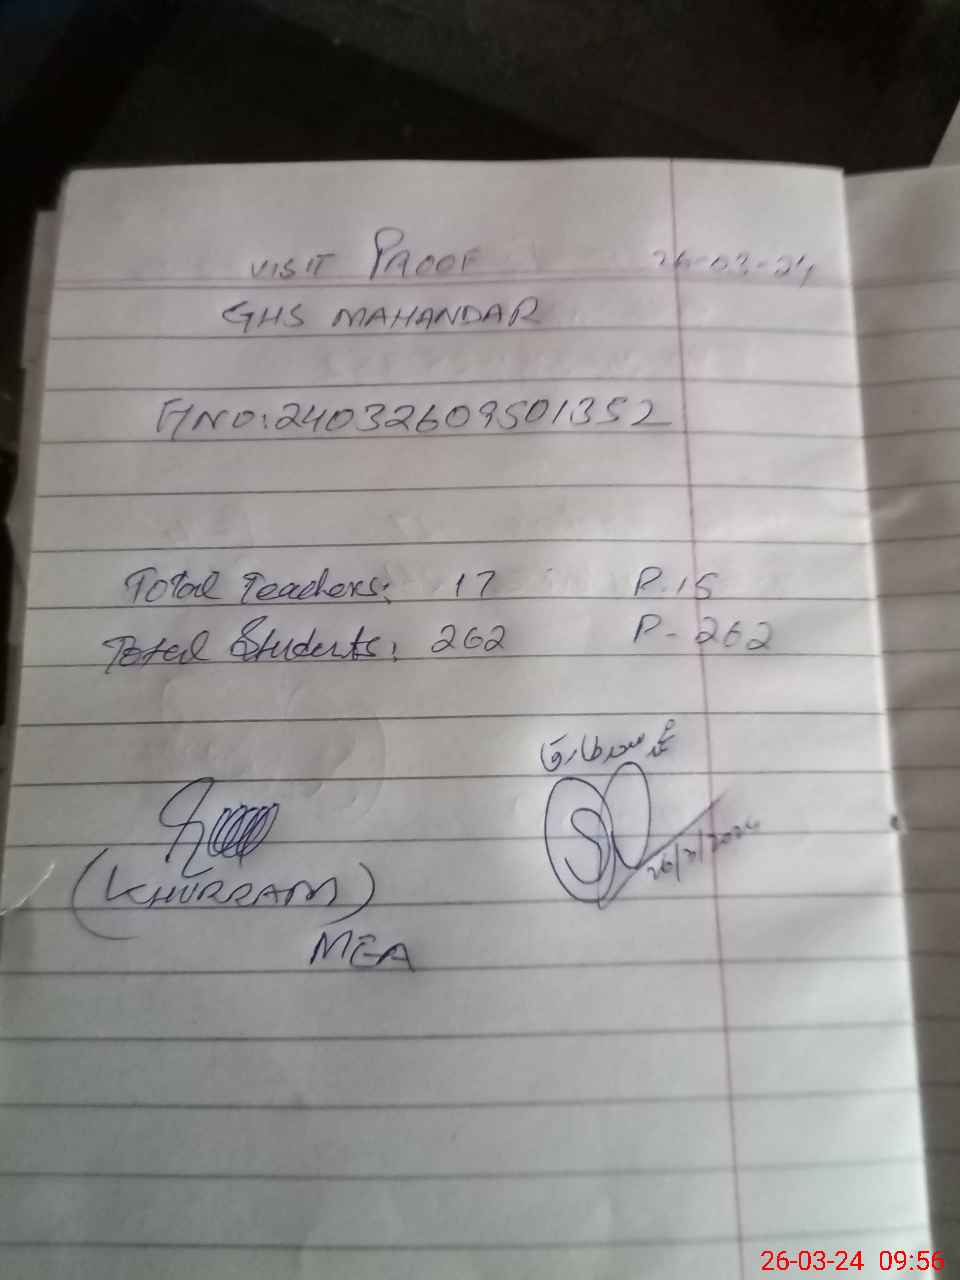 VISIT PROOF 26-03-24
GHS MAHANDAR
A NO: 24032609501352
Total Teachers: 17 P. 15
Total Students: 262 P - 262
(KHURRAM)
MEA
26/3/2024
26-03-24 09:56